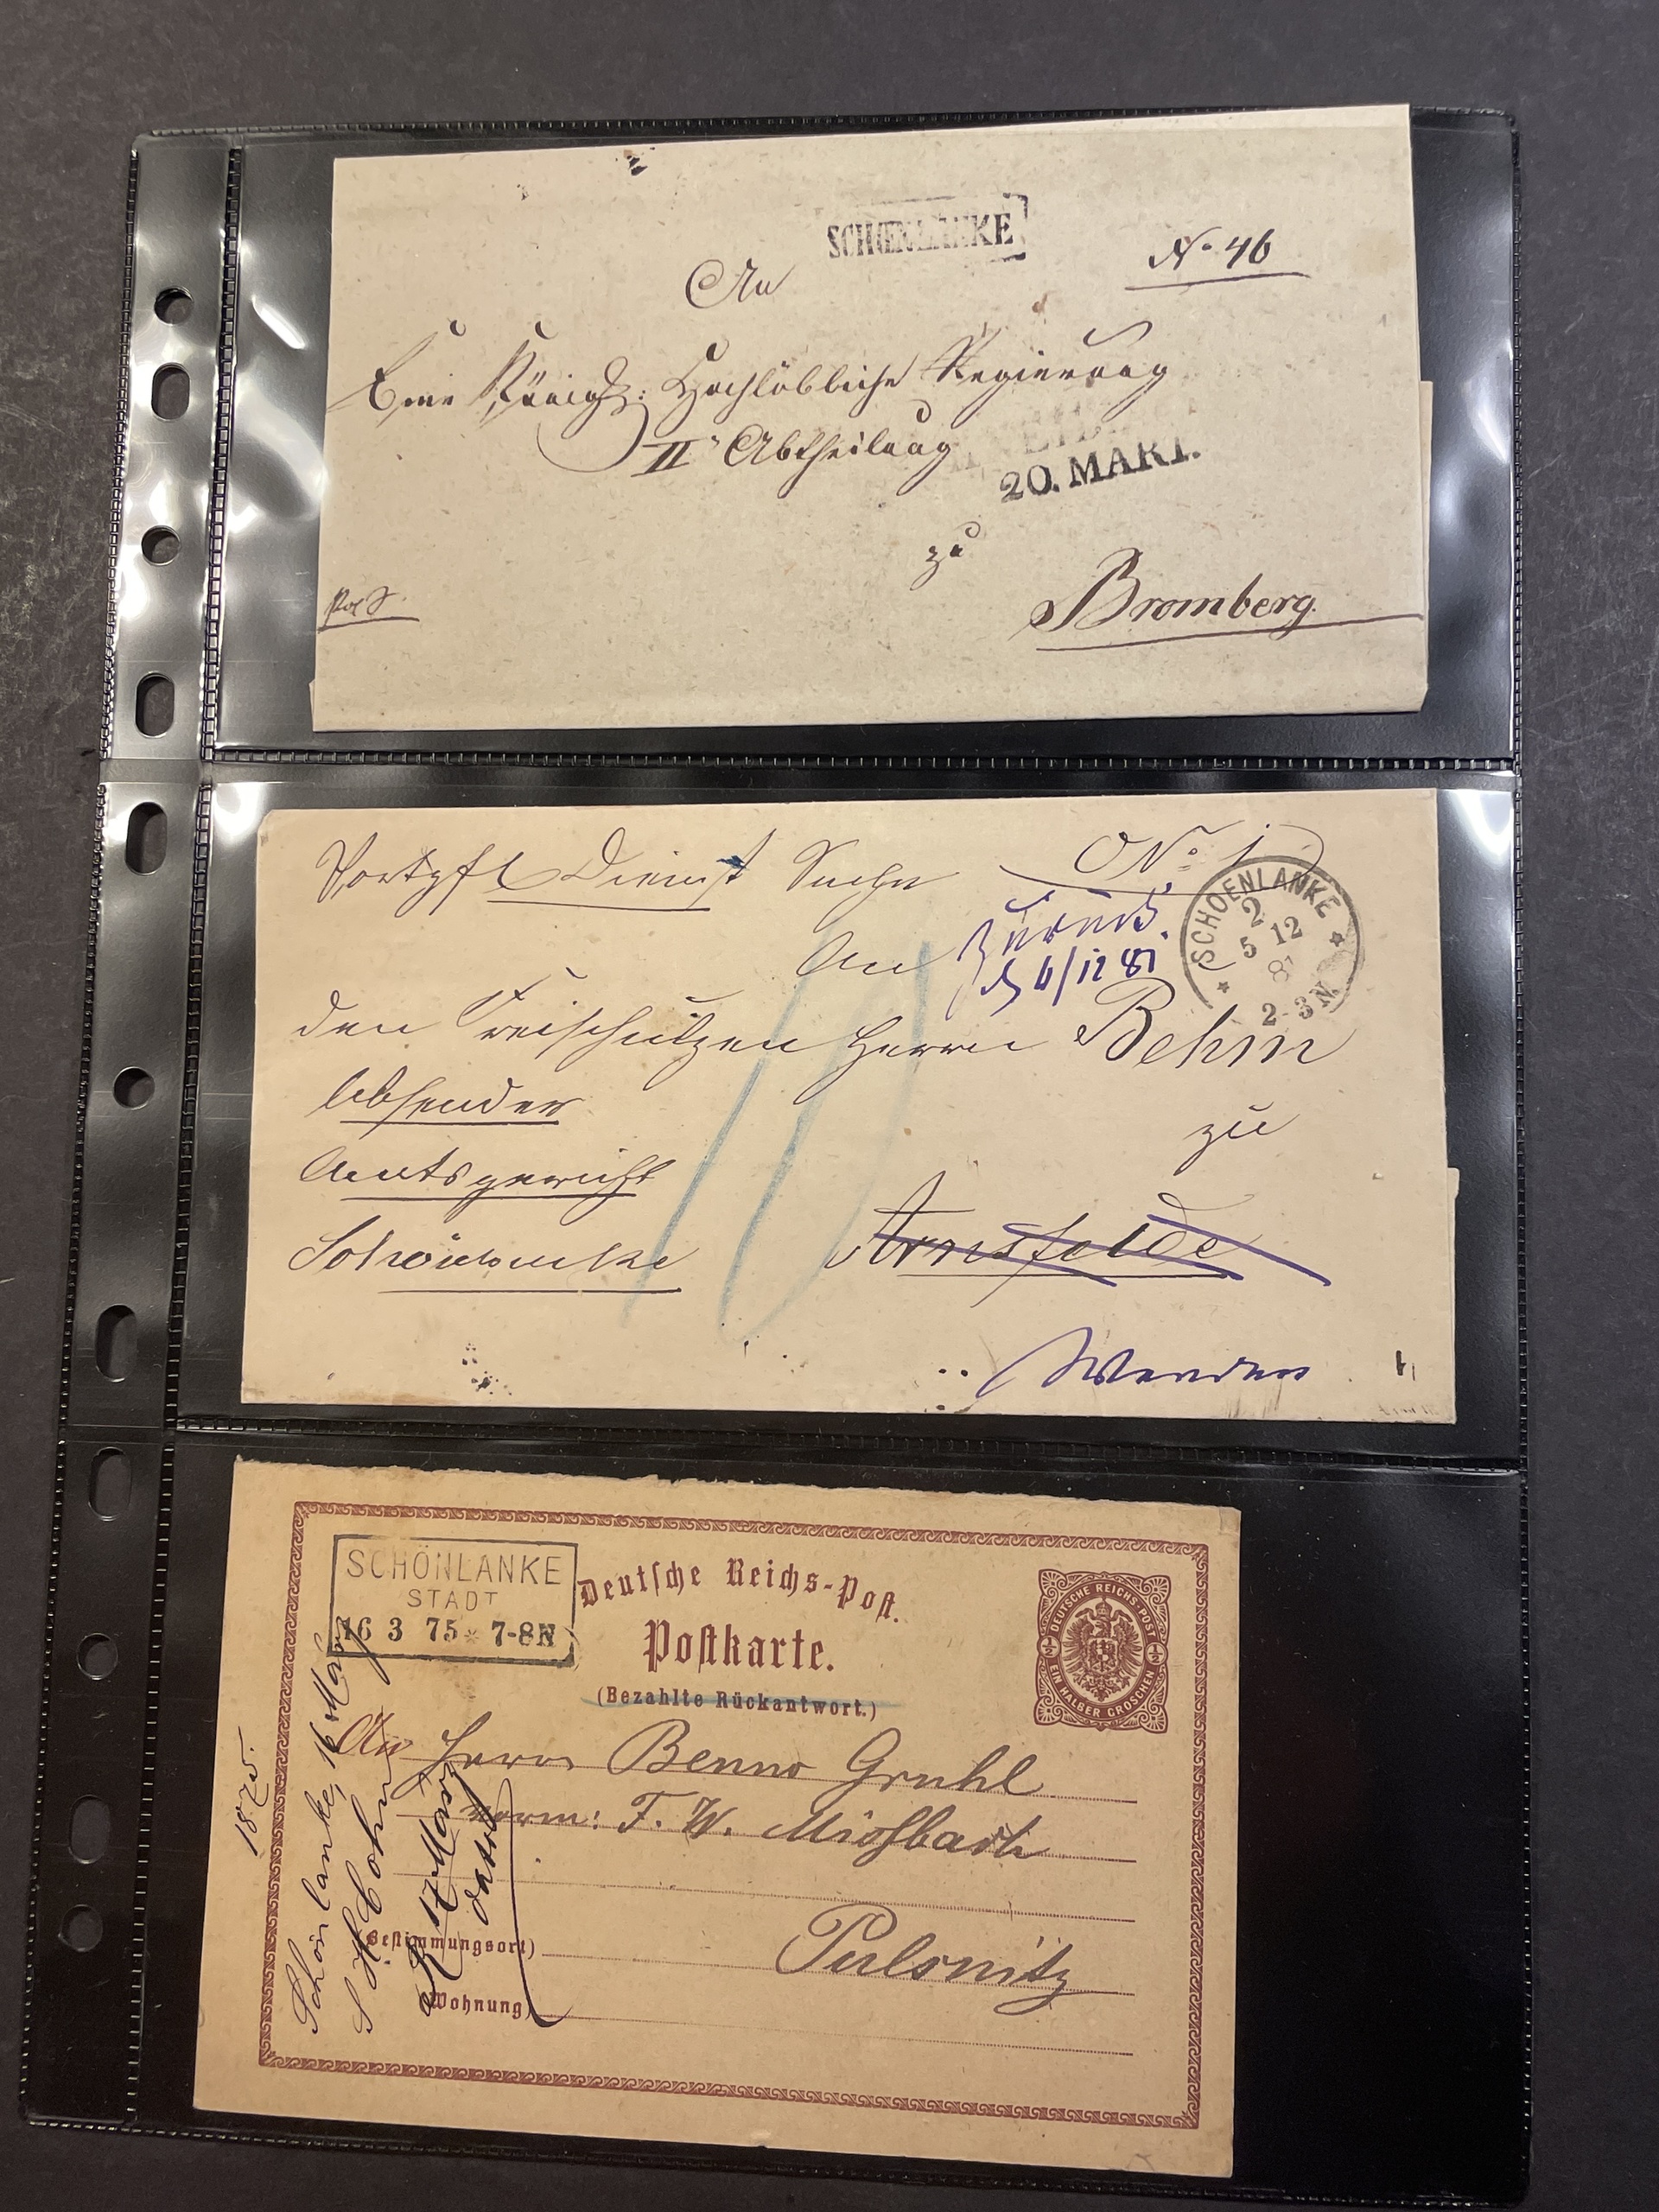 SCHOENLANKE
No 46
An
Eine Königl: Hochlöbliche Regierung
II. Abtheilung
20. MART.
zu
Bromberg.
Portopfl Dienst Sache
No. 1
SCHOENLANKE
2
5 12
8
2-3N
An
Zurück.
den Freischulzen Herrn Behm
Absender
zu
Amtsgericht
Schönlanke
Arnsfelde
Wenden
10
SCHÖNLANKE
STADT
16 3 75 * 7-8N
Deutsche Reichs-Post.
Postkarte.
(Bezahlte Rückantwort.)
DEUTSCHE REICHS-POST
½ ½
EIN HALBER GROSCHEN
An Herrn Benno Gruhl
vorm: F. W.
(Bestimmungsort)
Pulsnitz
(Wohnung)
1875.
Schönlanke, 16 März
Cohn
17 März